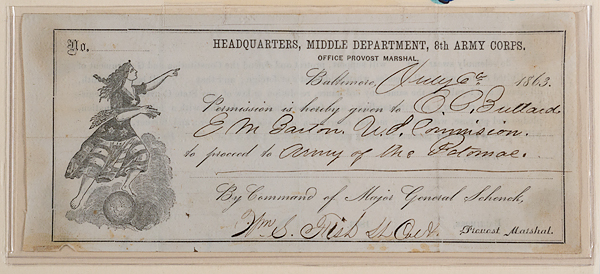 No.
HEADQUARTERS, MIDDLE DEPARTMENT, 8th ARMY CORPS.
OFFICE PROVOST MARSHAL.
Baltimore, July 6th 1863.
Permission is hereby given to C. C. Bullard
E M Barton. U. S. Commision.
to proceed to Army of the Potomac.
By Command of Major General Schenck,
Wm S. Fish Lt Col &
Provost Marshal.